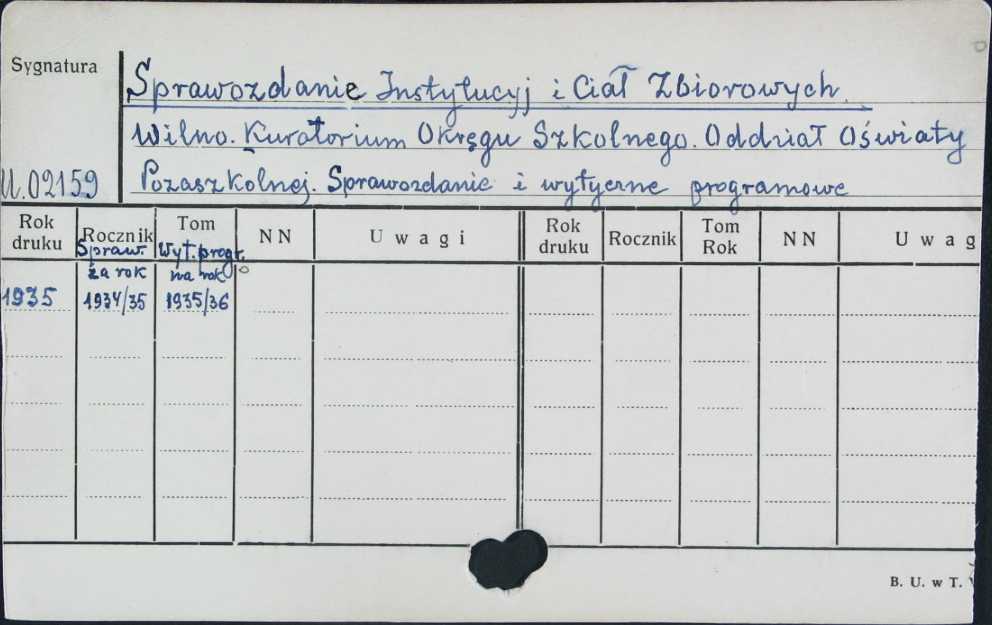 Sygnatura
Sprawozdanie Instytucyj i Ciał Zbiorowych.
Wilno. Kuratorium Okręgu Szkolnego. Oddział Oświaty
U.02159 Pozaszkolnej. Sprawozdanie i wytyczne programowe
Rok druku Rocznik Tom NN Uwagi Rok druku Rocznik Tom Rok NN Uwag
Spraw. Wyt. progr.
za rok na rok
1935 1934/35 1935/36
B. U. w T.